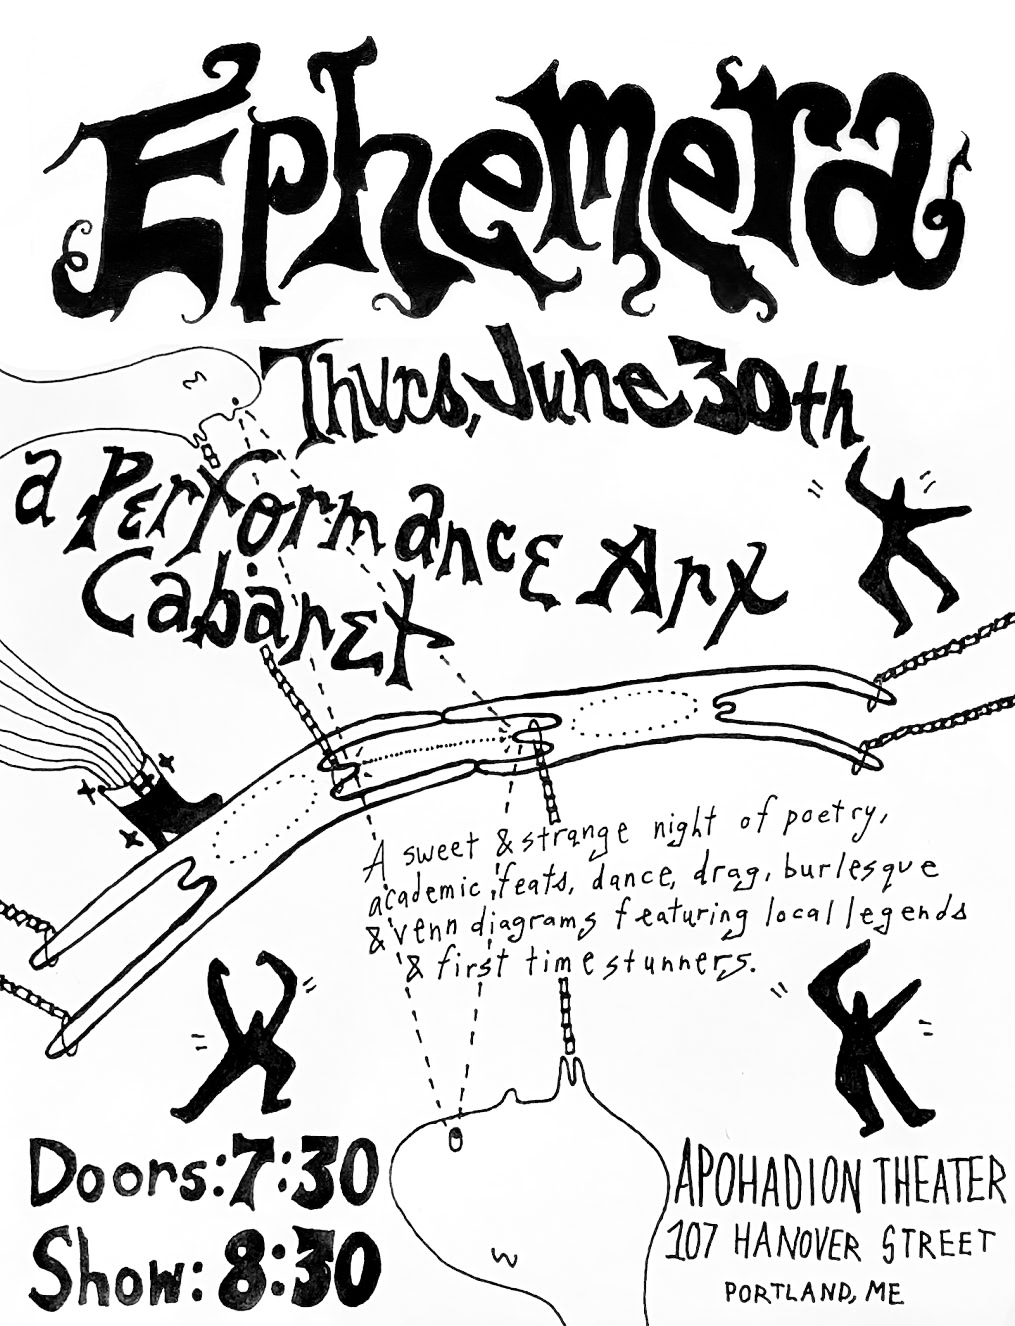 Ephemera
Thurs, June 30th
a Performance Art
Cabaret
A sweet & strange night of poetry,
academic feats, dance, drag, burlesque
& venn diagrams featuring local legends
& first time stunners.
Doors: 7:30
Show: 8:30
APOHADION THEATER
107 HANOVER STREET
PORTLAND, ME